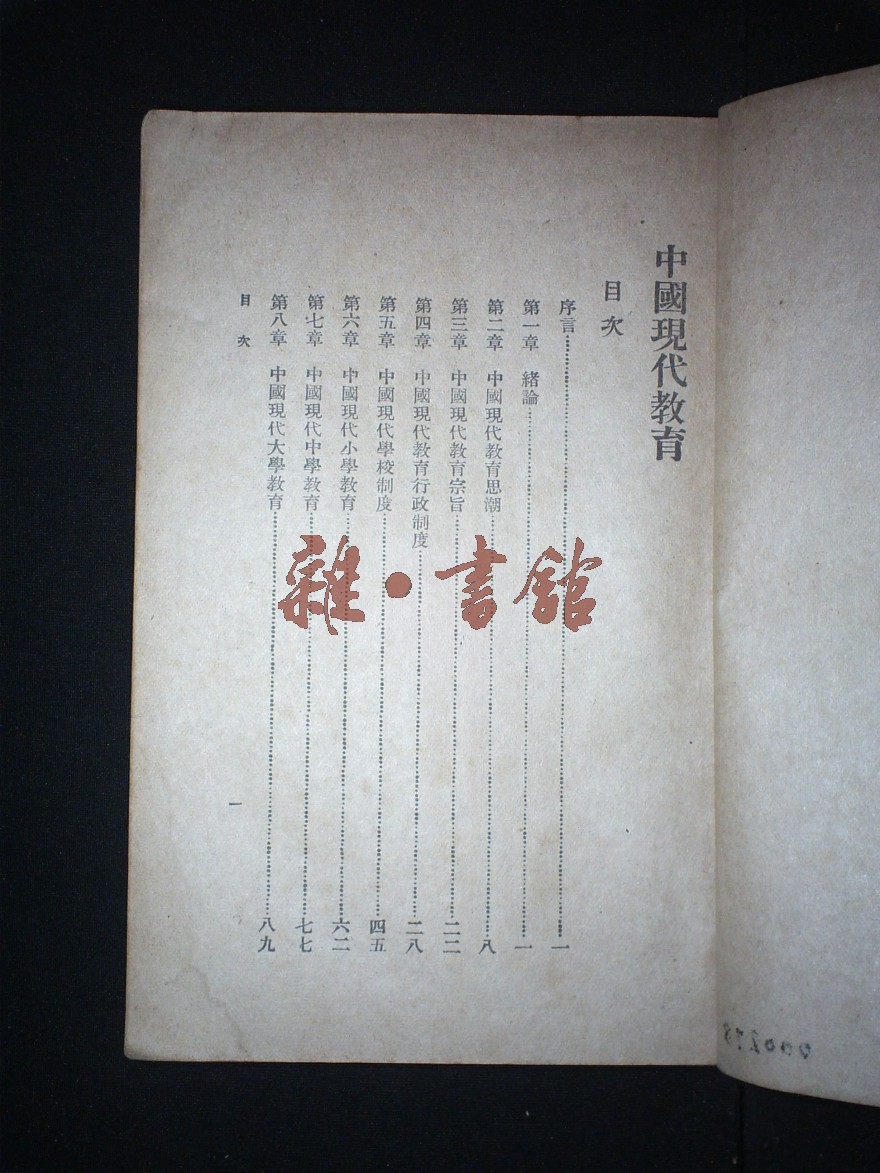 中國現代教育
目次
序言……一
第一章 緒論……一
第二章 中國現代教育思潮……八
第三章 中國現代教育宗旨……二二
第四章 中國現代教育行政制度……二八
第五章 中國現代學校制度……四五
第六章 中國現代小學教育……六二
第七章 中國現代中學教育……七七
第八章 中國現代大學教育……八九
目次 一
雜·書館